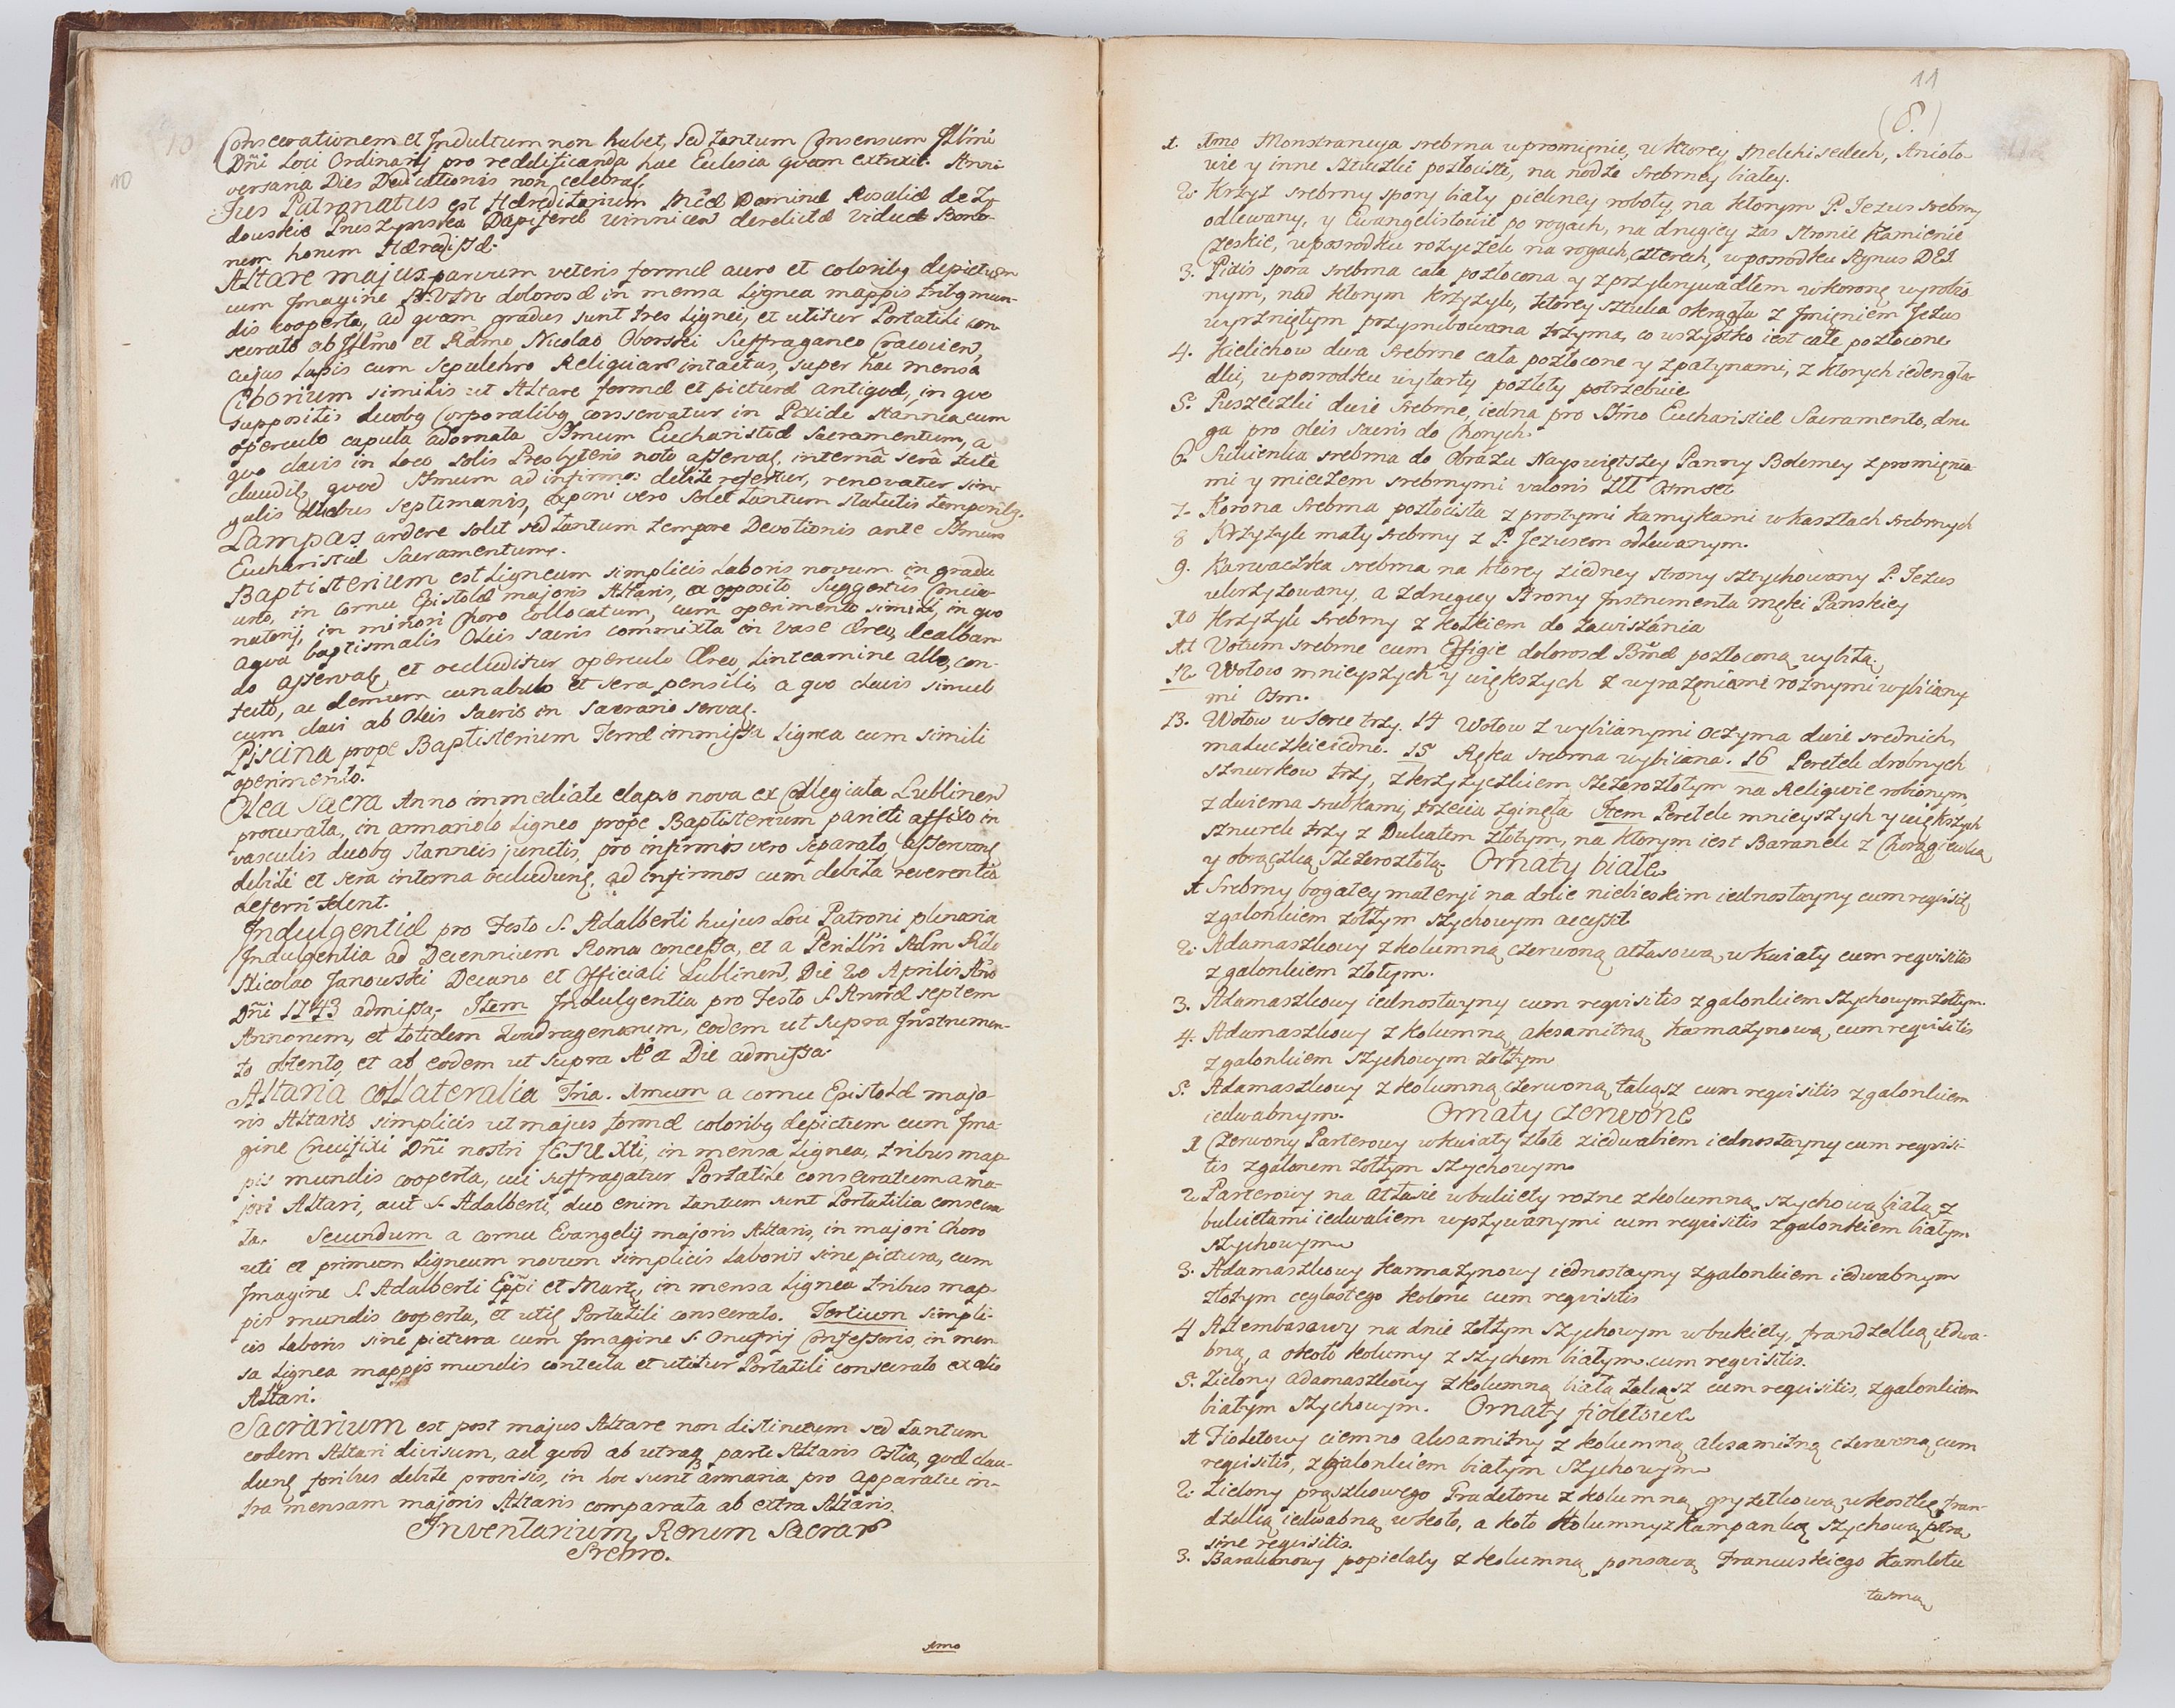 10
Consecrationem et Indultum non habet, sed tantum Consensum Illmi
Dñi Loci Ordinarij pro reædificanda hac Eclesia qvam extruxit. Anni-
versaria Dies Dedicationis non celebrat.
Jus Patronatus est Hæreditarium Mcæ Dominæ Rosaliæ de
douskie Pruszynska Dapiferæ Winnicen derelictæ Viduæ Bono-
rum horum Hæredissæ.
Altare majus parvum veteris formæ auro et coloribg depictum
cum Imagine B.V.M. dolorosæ in mensa Lignea mappis tribg mun-
dis cooperta, ad qvam gradus sunt tres Lignei, et utitur Portatili con-
secrato ab Illmo et Rdmo Nicolao Oborski Suffraganeo Cracovien,
cujus Lapis cum Sepulchro Reliqviar intactus, super hac mensa
Ciborium similis ut Altare formæ et picturæ antiqvæ, in qvo
suppositis duobg Corporalibg conservatur in Pixide stannea cum
operculo capula adornata Ssmum Eucharistiæ Sacramentum, a
qvo clavis in Loco Solis Presbyteris noto asservat. internâ serâ tutè
claudit, qvod Ssmum ad infirmos debite refertur, renovatur sin-
gulis duabus septimanis, exponi vero solet tantum statutis temporibg.
Lampas ardere solit sed tantum tempore Devotionis ante Ssmum
Eucharistiæ Sacramentum.
Baptisterium est Ligneum simplicis Laboris novum in gradu
uno, in Cornu Epistolæ majoris Altaris, ex opposito Suggestûs Concio-
natorij, in minori Choro Collocatum, cum operimento simili, in qvo
aqva baptismalis Oleis sacris commixta in vase Æreo, dealban-
do asservat, et occluditur operculo Æreo, Linteamine albo, con-
tecto, ac demum cunabulo et sera pensili, a qvo clavis simul
cum clavi ab Oleis Sacris in Sacrario servat.
Piscina prope Baptisterium Terræ immissa Lignea cum simili
operimento.
Olea Sacra Anno immediate elapso nova ex Collegiata Lublinen
procurata, in armariolo Ligneo prope Baptisterium parieti affixo in
vasculis duobg stanneis junctis, pro infirmis vero separato asservant
debite et sera interna occludunt, ad infirmos cum debita reverentia
deferri solent.
Indulgentiæ pro Festo S. Adalberti hujus Loci Patroni plenaria
Indulgentia ad Decennium Roma concessa, et a Perillri Adm Rdo
Nicolao Janowski Decano et Officiali Lublinen, Die 20 Aprilis Ano
Dñi 1743 admissa. Item Indulgentia pro Festo S. Annæ septem
Annorum, et totidem Qvadragenarum, eodem ut supra Instrumen-
to obtento, et ab eodem ut supra Ao et Die admissa.
Altaria collateralia Tria. 1mum a cornu Epistolæ majo-
ris Altaris simplicis ut majus formæ coloribg depictum cum Ima-
gine Crucifixi Dñi nostri JESU Xti, in mensa Lignea, tribus map-
pis mundis cooperta, cui suffragatur Portatile consecratum a ma-
jori Altari, aut S. Adalberti, duo enim tantum sunt Portatilia consecra-
ta. Secundum a cornu Evangelij majoris Altaris, in majori Choro
uti et primum Ligneum novum simplicis Laboris sine pictura, cum
Imagine S. Adalberti Eppi et Mart, in mensa Lignea tribus map-
pis mundis cooperta, et utit Portatili consecrato. Tertium simpli-
cis Laboris sine pictura cum Imagine S. Onufrij Confessoris, in men-
sa Lignea mappis mundis contecta et utitur Portatili consecrato ex alio
Altari.
Sacrarium est post majus Altare non distinctum sed tantum
eodem Altari divisum, ad qvod ab utraq parte Altaris Ostia, qvæ clau-
dunt foribus debite provisis, in hoc sunt 3 armaria pro apparatu in-
tra mensam majoris Altaris comparata ab extra Altaris.
Inventarium Rerum Sacrar
Srebro.
1mo
11
(8.)
1. 1mo Monstrancya srebrna w promięnie, w ktorey Melchisedech, Anioło-
wie y inne sztuczki pozłociste, na nodze srebrney białey.
2. Krzyż srebrny spory biały piekney roboty, na ktorym P. Jezus srebrny
odlewany, y Ewangelistowie po rogach, na drugiey zas stronie Kamienie
Czeskie, w posrodku rozyczele na rogach czterech, w posrodku Agnus DEI
3. Pixis spora srebrna cała pozłocona y z przykrywadłem w koronę wyrobio-
nym, nad ktorym Krzyzyk, ktorey sztuka okrągła z Imięniem Jezus
wyrzniętym przysrubowana trzyma, co wszystko iest cale pozłocone
4. Kielichow dwa srebrne cała pozłocone y z patynami, z ktorych ieden gła-
dki, w posrodku wytarty pozłoty potrzebuie
5. Puszeczki dwie srebrne, iedna pro Ssmo Eucharistiæ Sacramento, dru-
ga pro Oleis Sacris do Chorych.
6. Sukienka srebrna do Obrazu Nayswiętszey Panny Bolesney z promięnia-
mi y mieczem srebrnymi valoris zlł Osmset
7. Korona srebrna pozłocista z prostymi kamykami w kasztach srebrnych
8 Krzyzyk mały srebrny z P. Jezusem odlewanym.
9. Karwaczka srebrna na ktorey z iedney strony sztychowany P. Jezus
ukrzyzowany, a z drugiey Strony Instrumenta męki Panskiey
10 Krzyzyk srebrny z kołkiem do zawiszánia
11 Votum srebrne cum Effigie dolorosæ Bmæ pozłoconą wybitą.
12 Wotow mnieyszych y większych z wyrażęniami roznymi wybiiany-
mi Osm.
13. Wotow w serce trzy. 14 Wotow z wybiianymi oczyma dwie srednich,
maluczkie iedne. 15 Ręka srebrna wybiiana. 16 Perełek drobnych
sznurkow trzy, z krzyzyczkiem szczerozłotym na Religwie robionym,
z dwiema srubkami, trzecia zginęła. Item Perełek mnieyszych y większych
sznurek trzy z Dukatem złotym, na ktorym iest Baranek z Chorągiewką
y obrączką szczerozłotą. Ornaty białe
1 Srebrny bogatey materyi na dnie niebieskim iednostayny cum reqvisit
z galonkiem zołtym szychowym accessit
2. Adamaszkowy z kolumną czerwoną atłasową w kwiaty cum reqvisitis
z galonkiem złotym.
3. Adamaszkowy iednostayny cum reqvisitis z galonkiem szychowym zołtym.
4. Adamaszkowy z kolumną aksamitną karmazynową, cum reqvisitis
z galonkiem szychowym zołtym
5. Adamaszkowy z kolumną czerwoną takąsz cum reqvisitis z galonkiem
iedwabnym. Ornaty czerwone
1 Czerwony Parterowy w kwiaty złote z iedwabiem iednostayny cum reqvisi-
tis z galonem zołtym szychowym
2 Parterowy na atłasie w bukiety rozne z kolumną szychową białą z
bukietami iedwabiem wyszywanymi cum reqvisitis z galonkiem białym
szychowym
3. Adamaszkowy karmazynowy iednostayny z galonkiem iedwabnym
złotym ceglastego koloru cum reqvisitis
4 Altembasowy na dnie zołtym szychowym w bukiety, frandzelką iedwa-
bną, a około kolumy z szychem białym cum reqvisitis.
5. Zielony adamaszkowy z kolumną białą takąsz cum reqvisitis, z galonkiem
białym szychowym. Ornaty fioletowe
1 Fioletowy ciemno aksamitny z kolumną aksamitną czerwoną cum
reqvisitis, z galonkiem białym szychowym
2. Zielony prąszkowego Gradetoru z kolumną gryzetkową w kostkę, fran-
dzelką iedwabną w koło, a koło kolumny z kampanką szychową
sine reqvisitis.
3. Barakanowy popielaty z kolumną ponsową Francuskiego kamlotu
tasmą